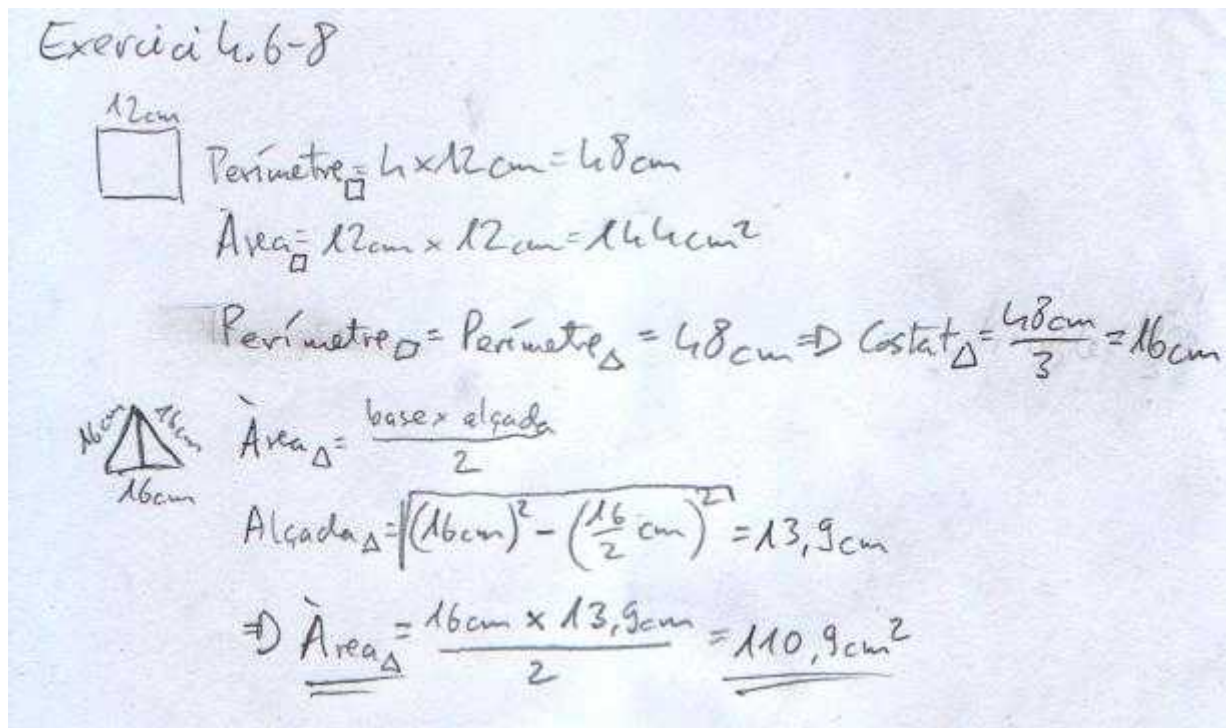 Exercici 4.6-8
12cm
Perímetre□ = 4 x 12 cm = 48 cm
Àrea□ = 12 cm x 12 cm = 144 cm²
Perímetre□ = Perímetre△ = 48 cm ⇒ Costat△ = 48 cm / 3 = 16 cm
16cm 16cm
16cm
Àrea△ = base x alçada / 2
Alçada△ = √((16cm)² - (16/2 cm)²) = 13,9 cm
⇒ Àrea△ = 16 cm x 13,9 cm / 2 = 110,9 cm²